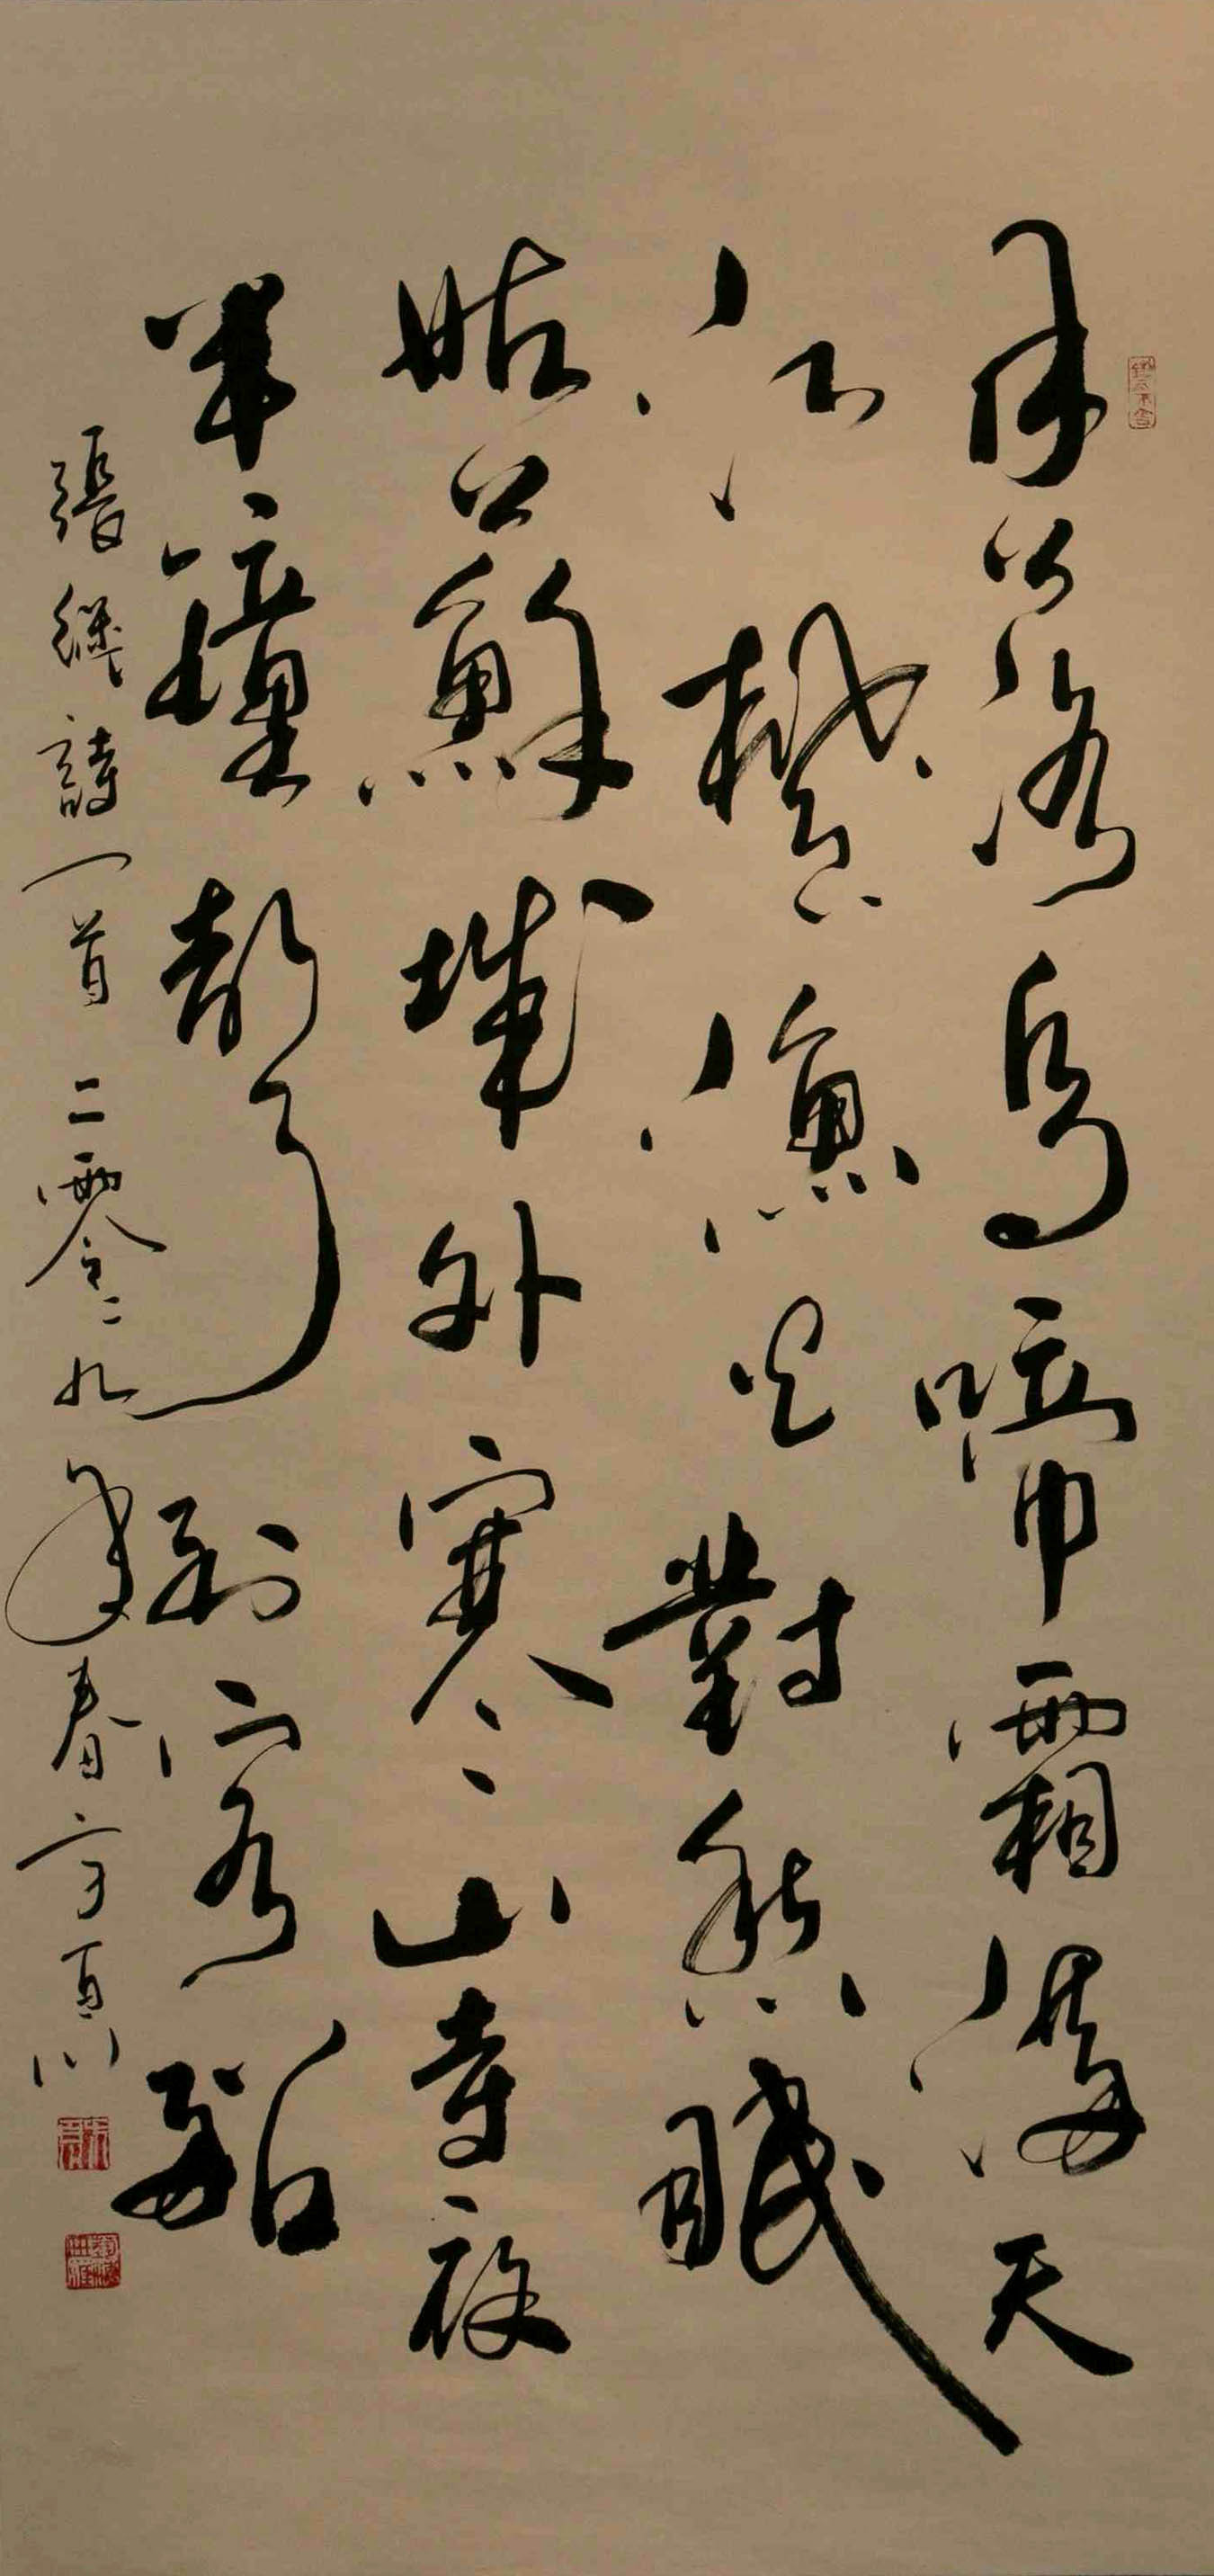 月落烏啼霜滿天
江楓漁火對愁眠
姑蘇城外寒山寺夜
半鐘聲到客船
張繼詩一首二零々九年春